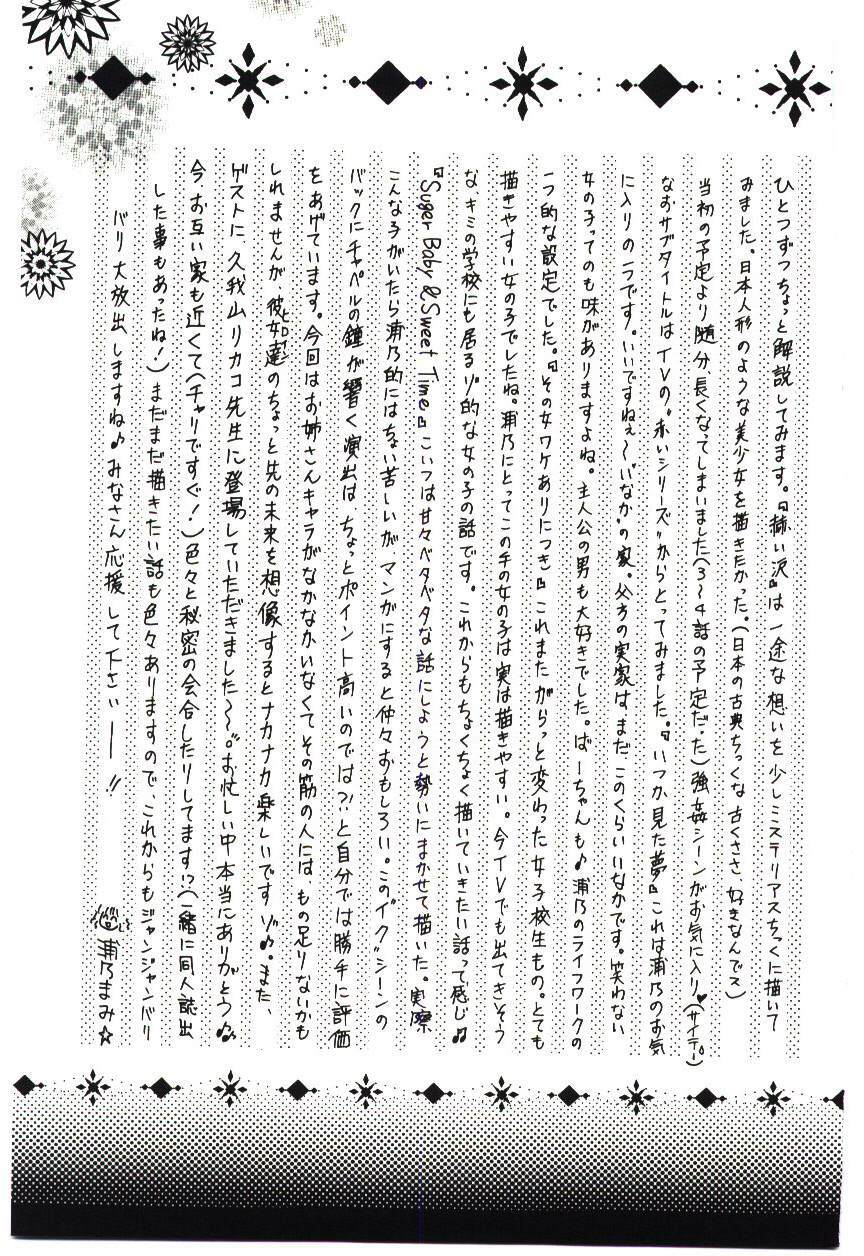 ひとつずつちょっと解説してみます。『赫い沢』は一途な想いを少しミステリアスちっくに描いて
みました。日本人形のような美少女を描きたかった。(日本の古典ちっくな古くささ、好きなんでス)
当初の予定より随分長くなってしまいました(3〜4話の予定だった)強姦シーンがお気に入り♥(サイテー。)
なおサブタイトルはTVの"赤いシリーズ"からとってみました。『いつか見た夢』これは浦乃のお気
に入りの一ラです。いいですねぇ〜"いなか"の家。父方の実家は、まだこのくらいいなかです。笑わない
女の子ってのも味がありますよね。主人公の男も大好きでした。ばーちゃんも♪浦乃のライフワークの
一つ的な設定でした。『その女ワケありにつき』これまたがらっと変わった女子校生もの。とても
描きやすい女の子でしたね。浦乃にとってこの手の女の子は実は描きやすい。今TVでも出てきそう
な、キミの学校にも居るゾ的な女の子の話です。これからもちょくちょく描いていきたい話って感じ♫
『Suger Baby & Sweet Time』こいつは甘々ベタベタな話にしようと勢いにまかせて描いた。実際
こんな子がいたら浦乃的にはちょい苦しいが、マンガにすると仲々おもしろい。この"イク"シーンの
バックにチャペルの鐘が響く演出は、ちょっとポイント高いのでは?!と自分では勝手に評価
をあげています。今回はお姉さんキャラがなかなかいなくてその筋の人には、もの足りないかも
しれませんが、彼女達(ヒロイン)のちょっと先の未来を想像するとナカナカ楽しいですゾ♪。また、
ゲストに久我山リカコ先生に登場していただきました〜〜。お忙しい中本当にありがとう♫
今お互い家も近くて(チャリですぐ!)色々と秘密の会合したりしてます!?(一緒に同人誌出
した事もあったね!)まだまだ描きたい話も色々ありますので、これからもジャンジャンバリ
バリ大放出しますね♪みなさん応援して下さいーー!!
浦乃まみ☆